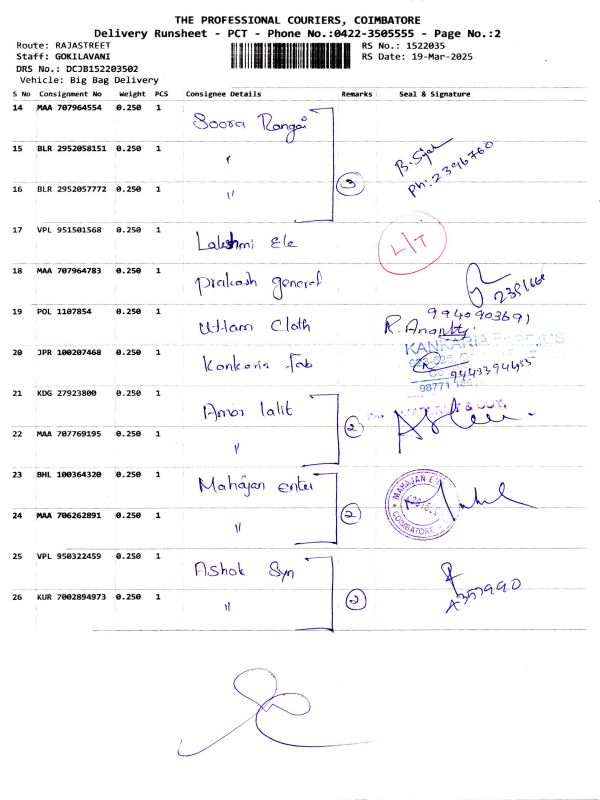 THE PROFESSIONAL COURIERS, COIMBATORE
Delivery Runsheet - PCT - Phone No.:0422-3505555 - Page No.:2
Route: RAJASTREET RS No.: 1522035
Staff: GOKILAVANI RS Date: 19-Mar-2025
DRS No.: DCJB152203502
Vehicle: Big Bag Delivery
S No Consignment No Weight PCS Consignee Details Remarks Seal & Signature
14 MAA 707964554 0.250 1 Soora Rangai
15 BLR 2952058151 0.250 1 "
16 BLR 2952057772 0.250 1 " 3 Ph: 2396760
17 VPL 951501568 0.250 1 Lakshmi Ele L/T
18 MAA 707964783 0.250 1 Prakash general
19 POL 1107854 0.250 1 Uttam Cloth 9940903691
20 JPR 100207468 0.250 1 Kankaria Fab KANKARIA
21 KDG 27923800 0.250 1 Amar lalit
22 MAA 707769195 0.250 1 " 2
23 BHL 100364320 0.250 1 Mahajan enter MAHAJAN
24 MAA 706262891 0.250 1 " 2 COIMBATORE
25 VPL 950322459 0.250 1 Ashok Syn
26 KUR 7002894973 0.250 1 " 2